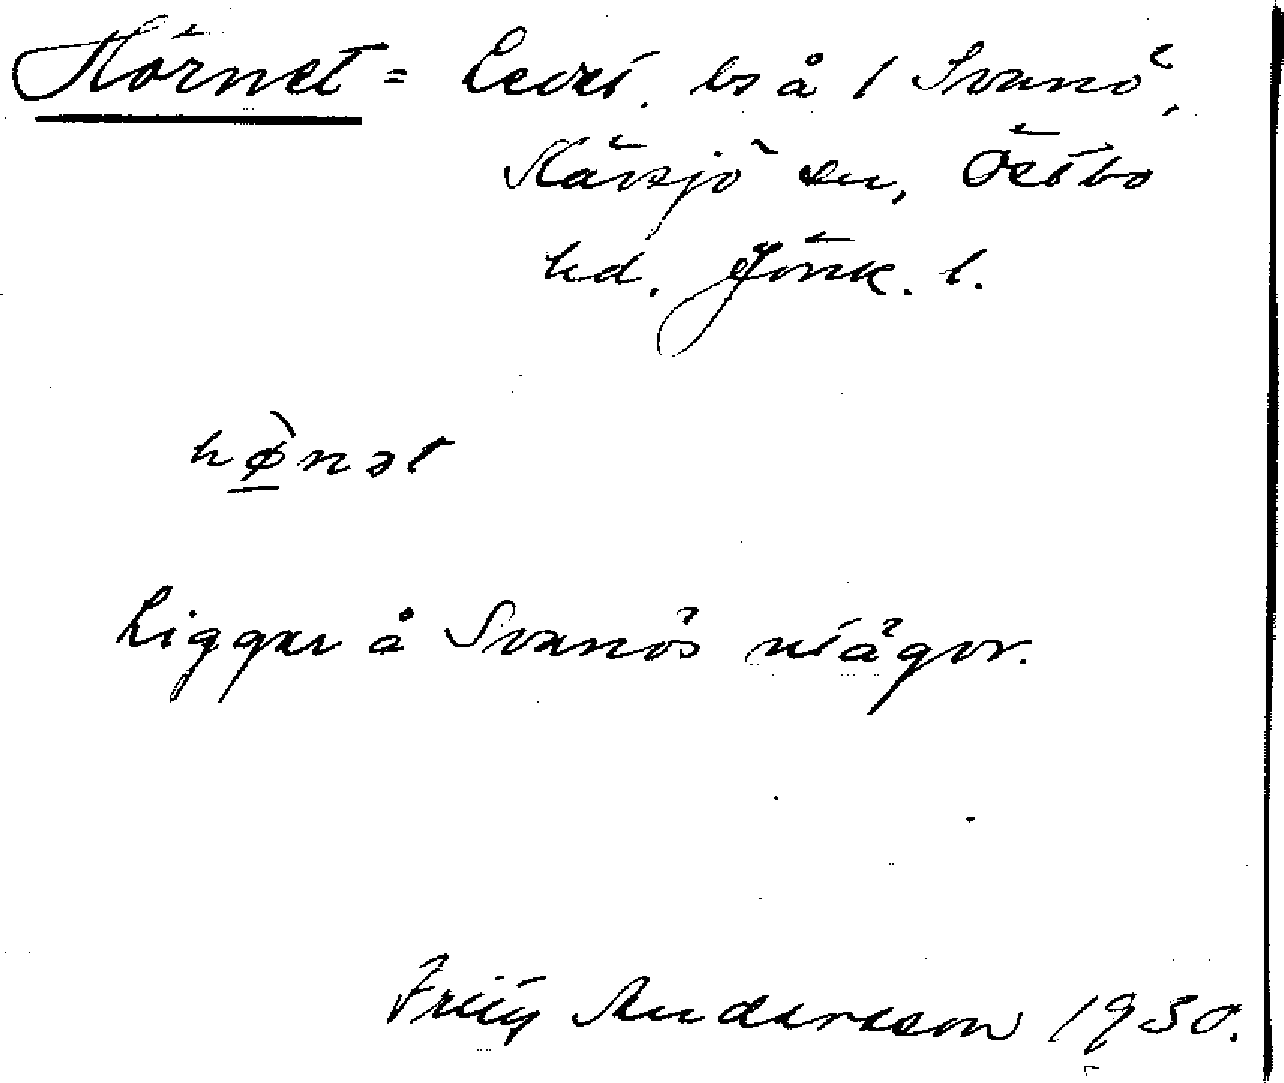 Hörnet = Lect. bs å 1 Svanö,
Kävsjö sn, Östbo
hd. Jönk. l.
hø̀nət
Ligger å Svanös utägor.
Fritz Andersson 1930.